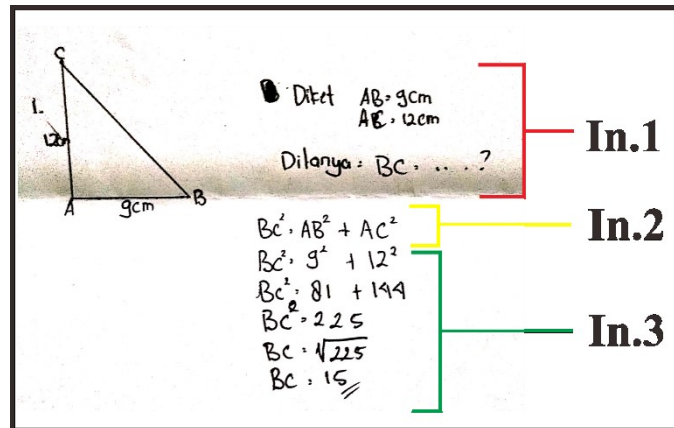 C
1.
12cm
A
9cm
B
Diket AB = 9cm
AC = 12cm
Ditanya = BC = .. . . ?
BC² = AB² + AC²
BC² = 9² + 12²
BC² = 81 + 144
BC² = 225
BC = √225
BC = 15
In.1
In.2
In.3